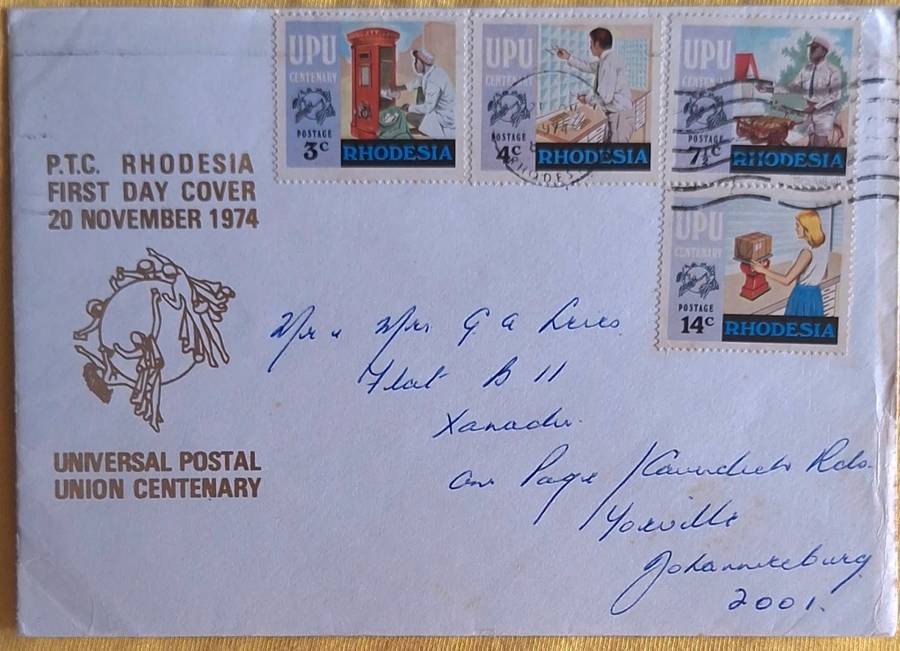 P.T.C. RHODESIA
FIRST DAY COVER
20 NOVEMBER 1974
UNIVERSAL POSTAL
UNION CENTENARY
UPU
CENTENARY
POSTAGE
3c
RHODESIA
UPU
CENTENARY
POSTAGE
4c
RHODESIA
UPU
CENTENARY
POSTAGE
7½c
RHODESIA
UPU
CENTENARY
POSTAGE
14c
RHODESIA
Mr & Mrs G A
Flat B 11
Xanadu.
Page / Cavendish Rds.
Yeoville
Johannesburg
2001.